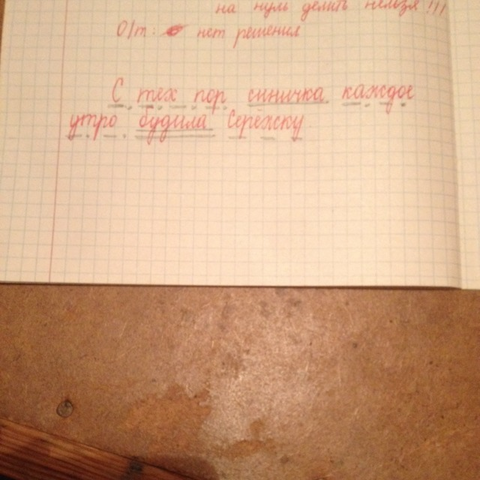 на нуль делить нельзя!!!
О/т: нет решения
С тех пор синичка каждое
утро будила Серёжску.